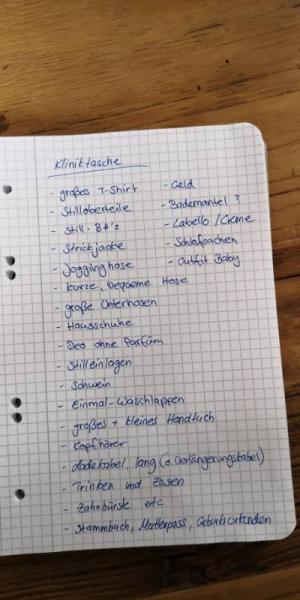 Kliniktasche
- großes T-Shirt
- Stilloberteile
- Still-BH's
- Strickjacke
- Jogginghose
- kurze, bequeme Hose
- große Unterhosen
- Hausschuhe
- Deo ohne Parfüm
- Stilleinlagen
- Schwein
- Einmal-Waschlappen
- großes + kleines Handtuch
- Kopfhörer
- Ladekabel, lang (o. Verlängerungskabel)
- Trinken und Essen
- Zahnbürste etc
- Stammbuch, Mutterpass, Geburtsurkunden
- Geld
- Bademantel ?
- Labello / Creme
- Schlafsachen
- Outfit Baby